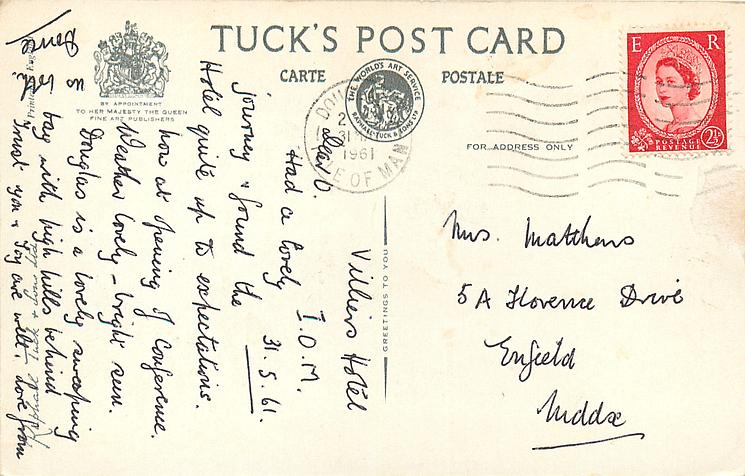 TUCK'S POST CARD
CARTE POSTALE
BY APPOINTMENT
TO HER MAJESTY THE QUEEN
FINE ART PUBLISHERS
THE WORLD'S ART SERVICE
RAPHAEL TUCK & SONS LTD
1961
OF MAN
E R
POSTAGE
REVENUE
2½D
FOR ADDRESS ONLY
GREETINGS TO YOU
Villiers Hotel
I.O.M.
31.5.61.
Dear D.
Had a lovely
journey & found the
Hotel quite up to expectations.
now at opening of Conference.
Weather lovely - bright sun.
Douglas is a lovely sweeping
bay with high hills behind
Trust you & Joy are well. Love from
us both.
Mrs. Matthews
5A Florence Drive
Enfield
Middx